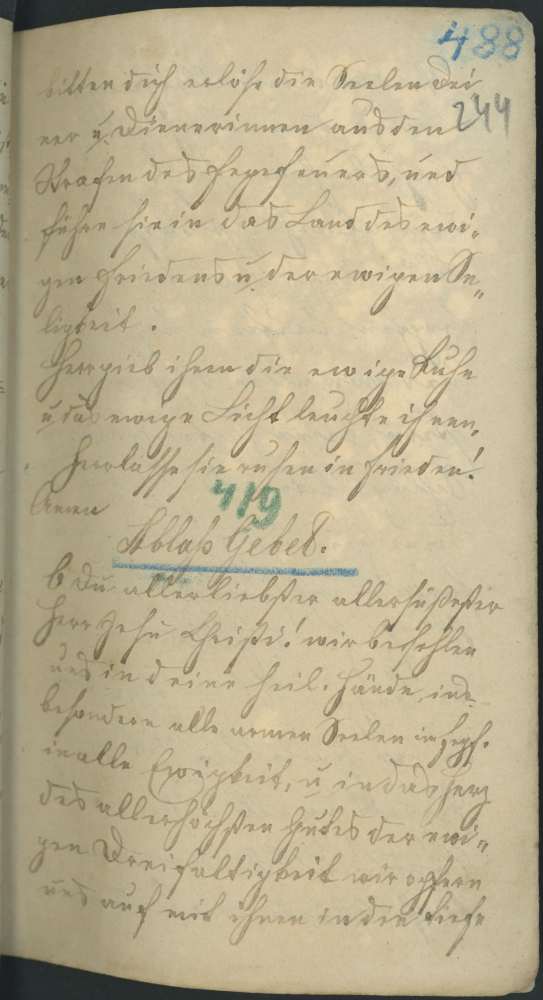 488
244
bitten dich erlöse die Seelen Dei
ner u. Dienerinnen aus den
Strafen des Fegefeuers, und
führe sie in das Land des ewi„
gen Friedens u. der ewigen Se„
ligkeit.
Herr gieb ihnen die ewige Ruhe
u. das ewige Licht leuchte ihnen,
Herr lasse sie ruhen in Frieden!
Amen
419
Ablaß Gebet.
O Du allerliebster allersüßester
Herr Jesu Christi! wir befehlen
uns in deine heil. Hände, ins
besondere alle armen Seelen im Fegf.
in alle Ewigkeit, u. in das Herz
des allerhöchsten Gutes der ewi„
gen Dreifaltigkeit wir opfern
uns auf mit ihnen in die Tiefe